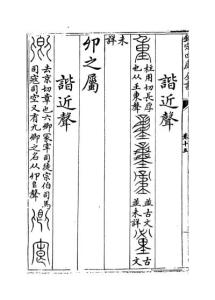 卷十五
諧近聲
重
柱用切長厚
也从壬東聲
並古文
並未詳
古文
未詳
卯之屬
諧近聲
去京切章也六卿冢宰司徒宗伯司馬
司寇司空又有九卿之名从卯皀聲